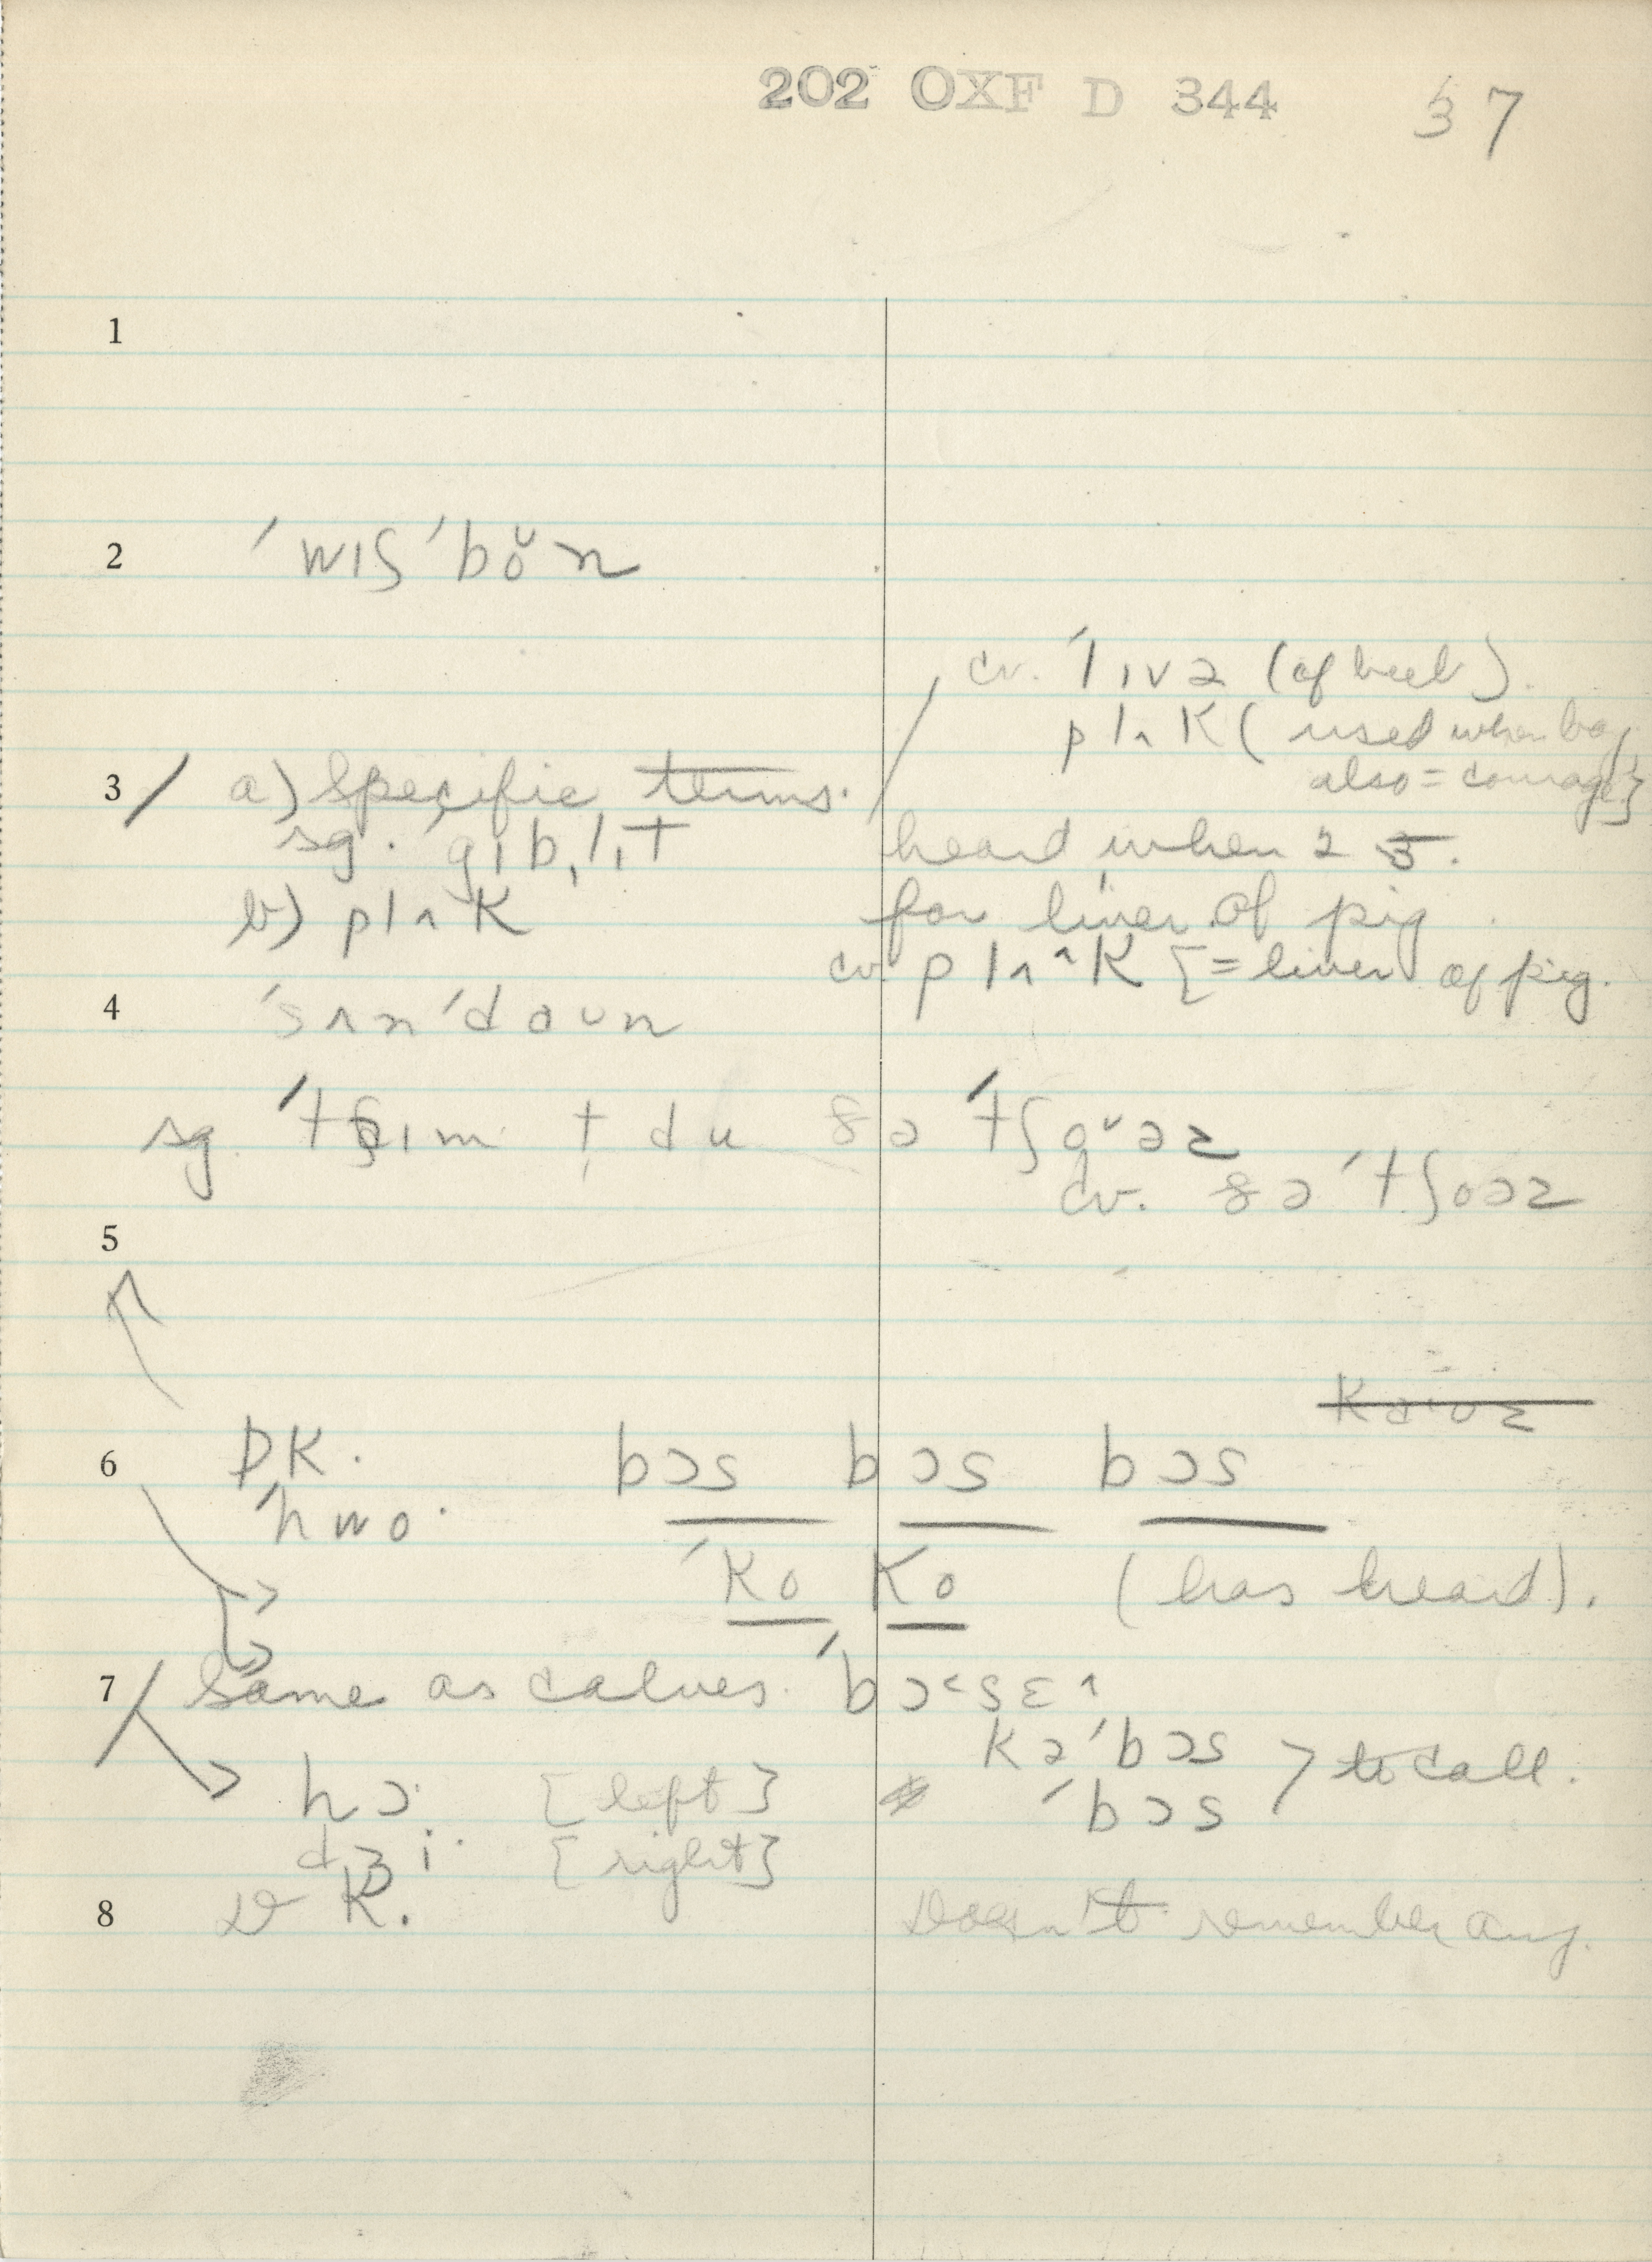 202 OXF D 344 37
1
2 ˈwɪʃˈbo̯n
cv. ˈlɪvə (of beef).
plʌk (used when boy
also = courage)}
3 / a) Specific terms.
sg. gɪblɪt heard when 25.
b) plʌk for liver of pig
cv. plʌˆk [= liver of pig.
4 ˈsʌnˈdaʊn
sg. ˈtʃaɪm tɪ du ðə ˈtʃo̯əz
cv. ðə ˈtʃoəz
5
6 DK. bɔs bɔs bɔs
ˈhwo.
ˈko ko (has heard).
7 Same as calves. ˈbɔ˂sɛ˄
kəˈbɔs > to call.
hɔ: [left] ˈbɔs
dʒi· [right]
8 DK. Doesn't remember any.